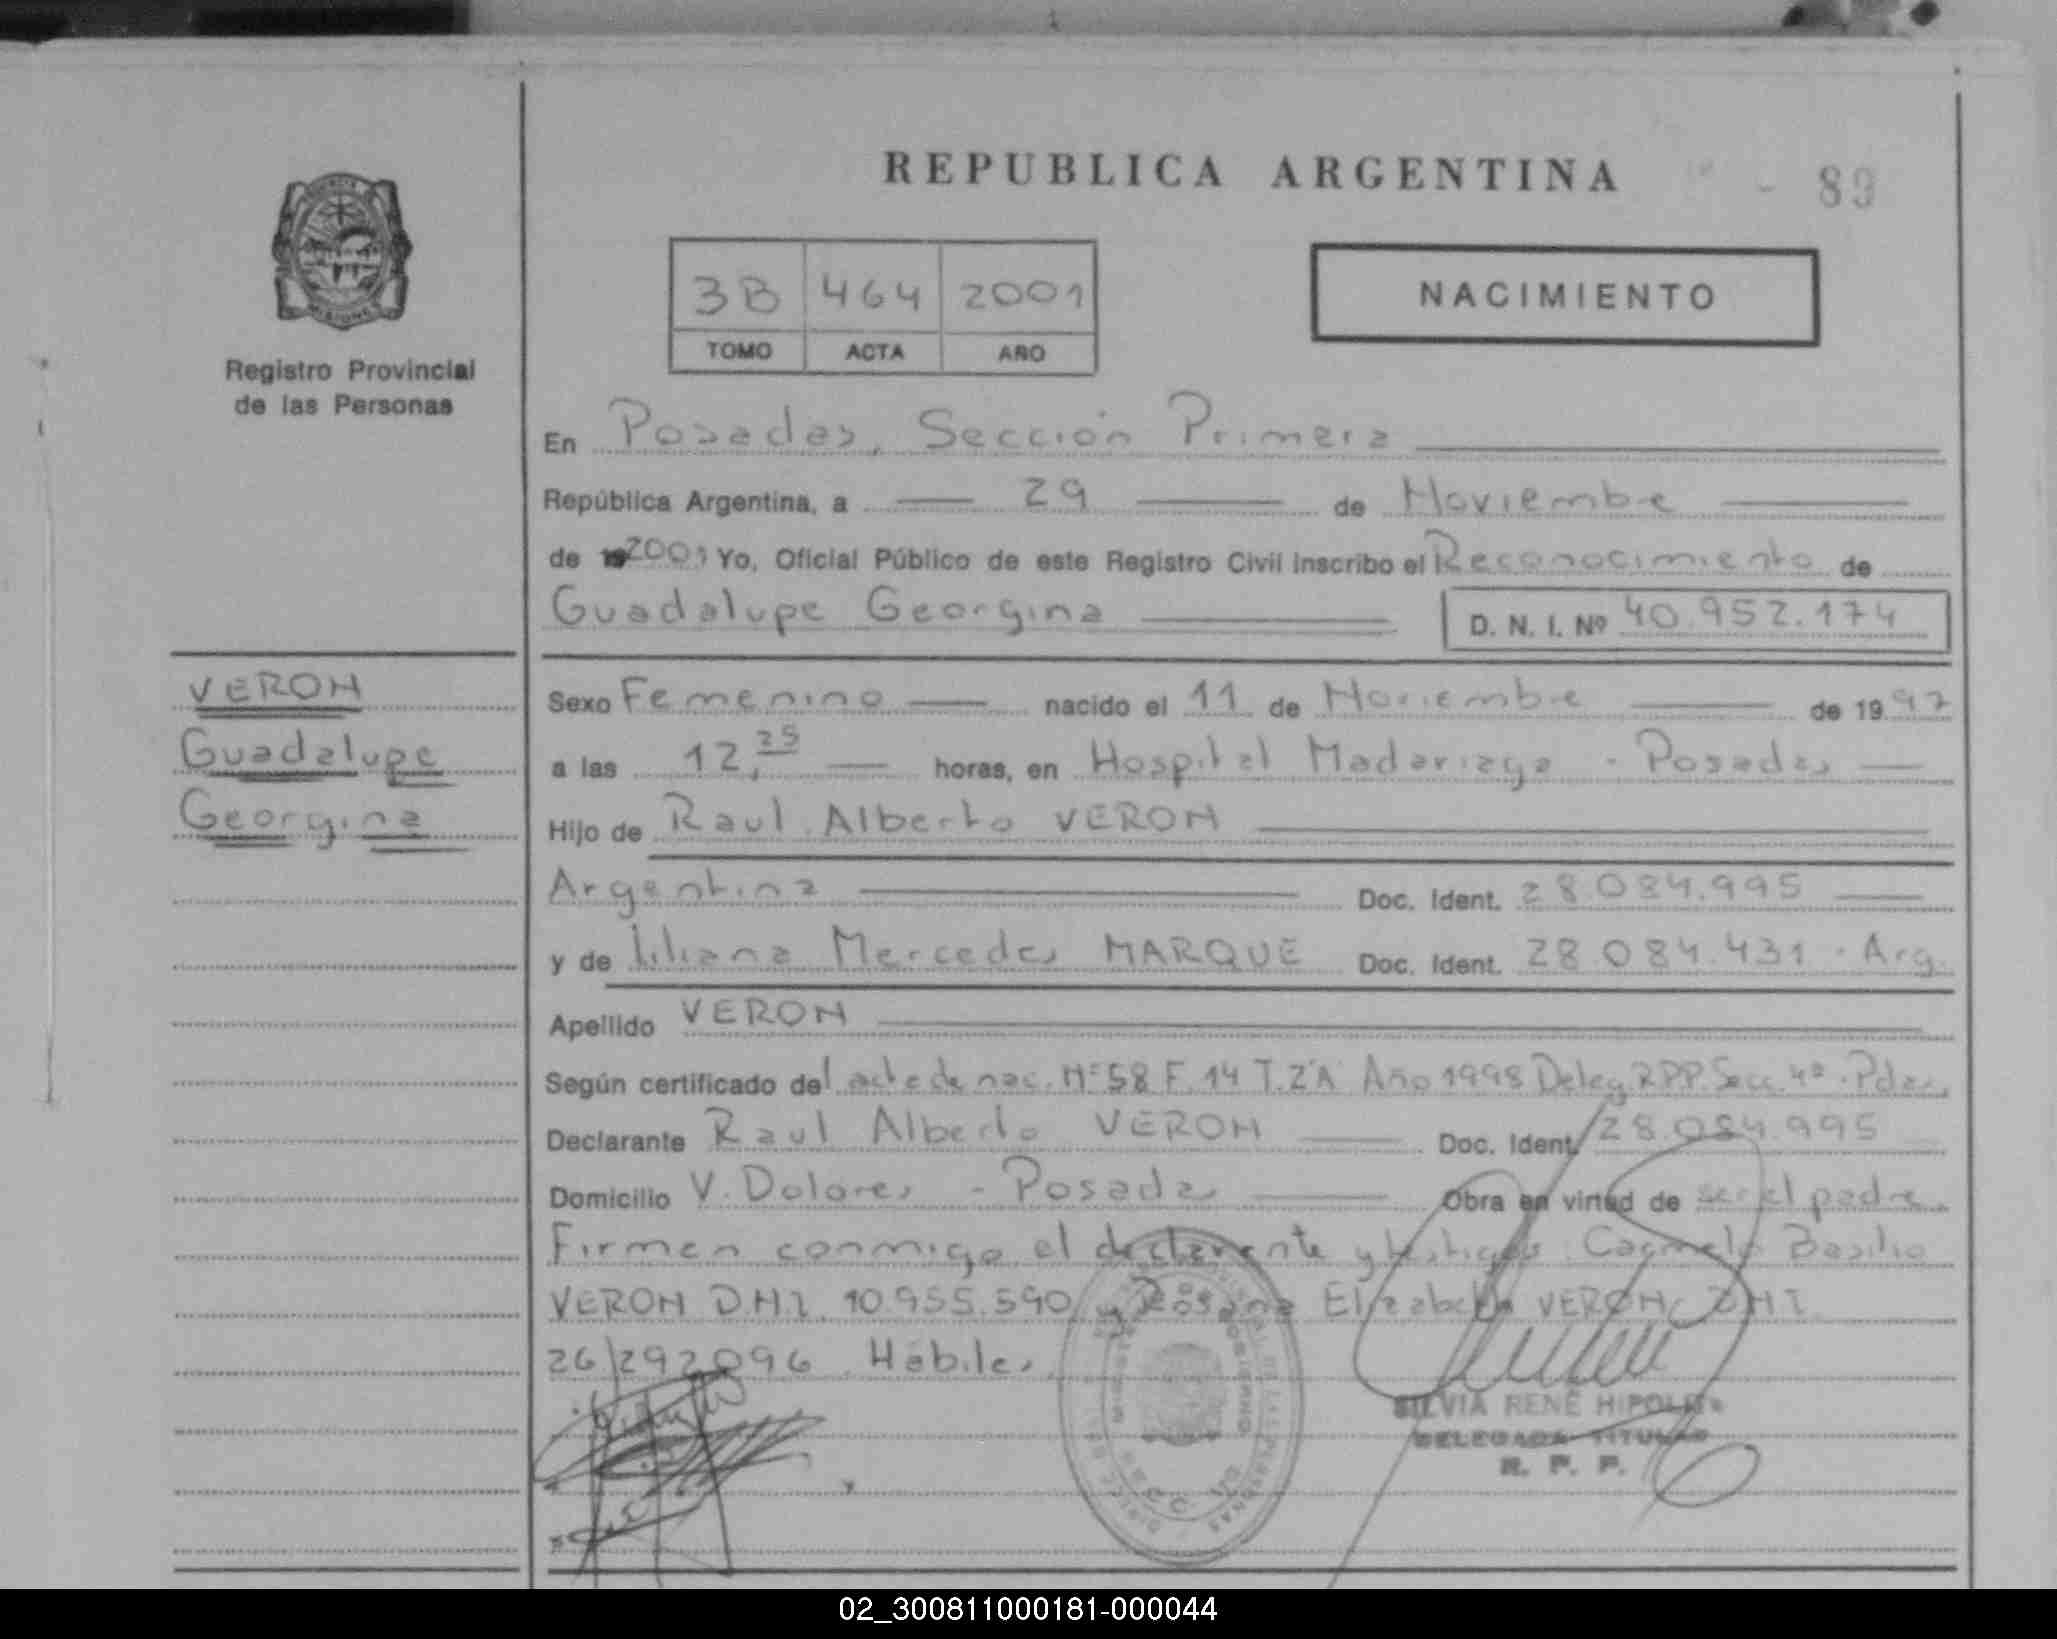 REPUBLICA ARGENTINA
- 89
3B 464 2001
TOMO ACTA AÑO
NACIMIENTO
MISIONES
Registro Provincial
de las Personas
En Posadas, Sección Primera
República Argentina, a 29 de Noviembre
de 2001 Yo, Oficial Público de este Registro Civil inscribo el Reconocimiento de
Guadalupe Georgina D. N. I. Nº 40.952.174
VERON
Guadalupe
Georgina
Sexo Femenino nacido el 11 de Noviembre de 1997
a las 12,25 horas, en Hospital Madariaga - Posadas
Hijo de Raul Alberto VERON
Argentina Doc. Ident. 28.084.995
y de Liliana Mercedes MARQUE Doc. Ident. 28.084.431 - Arg.
Apellido VERON
Según certificado del acta de nac. Nº 58 F. 14 T. 2"A" Año 1998 Deleg. R.P.P. Secc. 4ª - Pdas.
Declarante Raul Alberto VERON Doc. Ident. 28.084.995
Domicilio V. Dolores - Posadas Obra en virtud de ser el padre.
Firman conmigo el declarante y testigos: Carmelo Basilio
VERON D.N.I. 10.955.590 y Rosana Elizabeth VERON D.N.I.
26.292.096. Hábiles.
SILVIA RENÉ HIPOLITO
DELEGADA TITULAR
R. P. P.
02_300811000181-000044